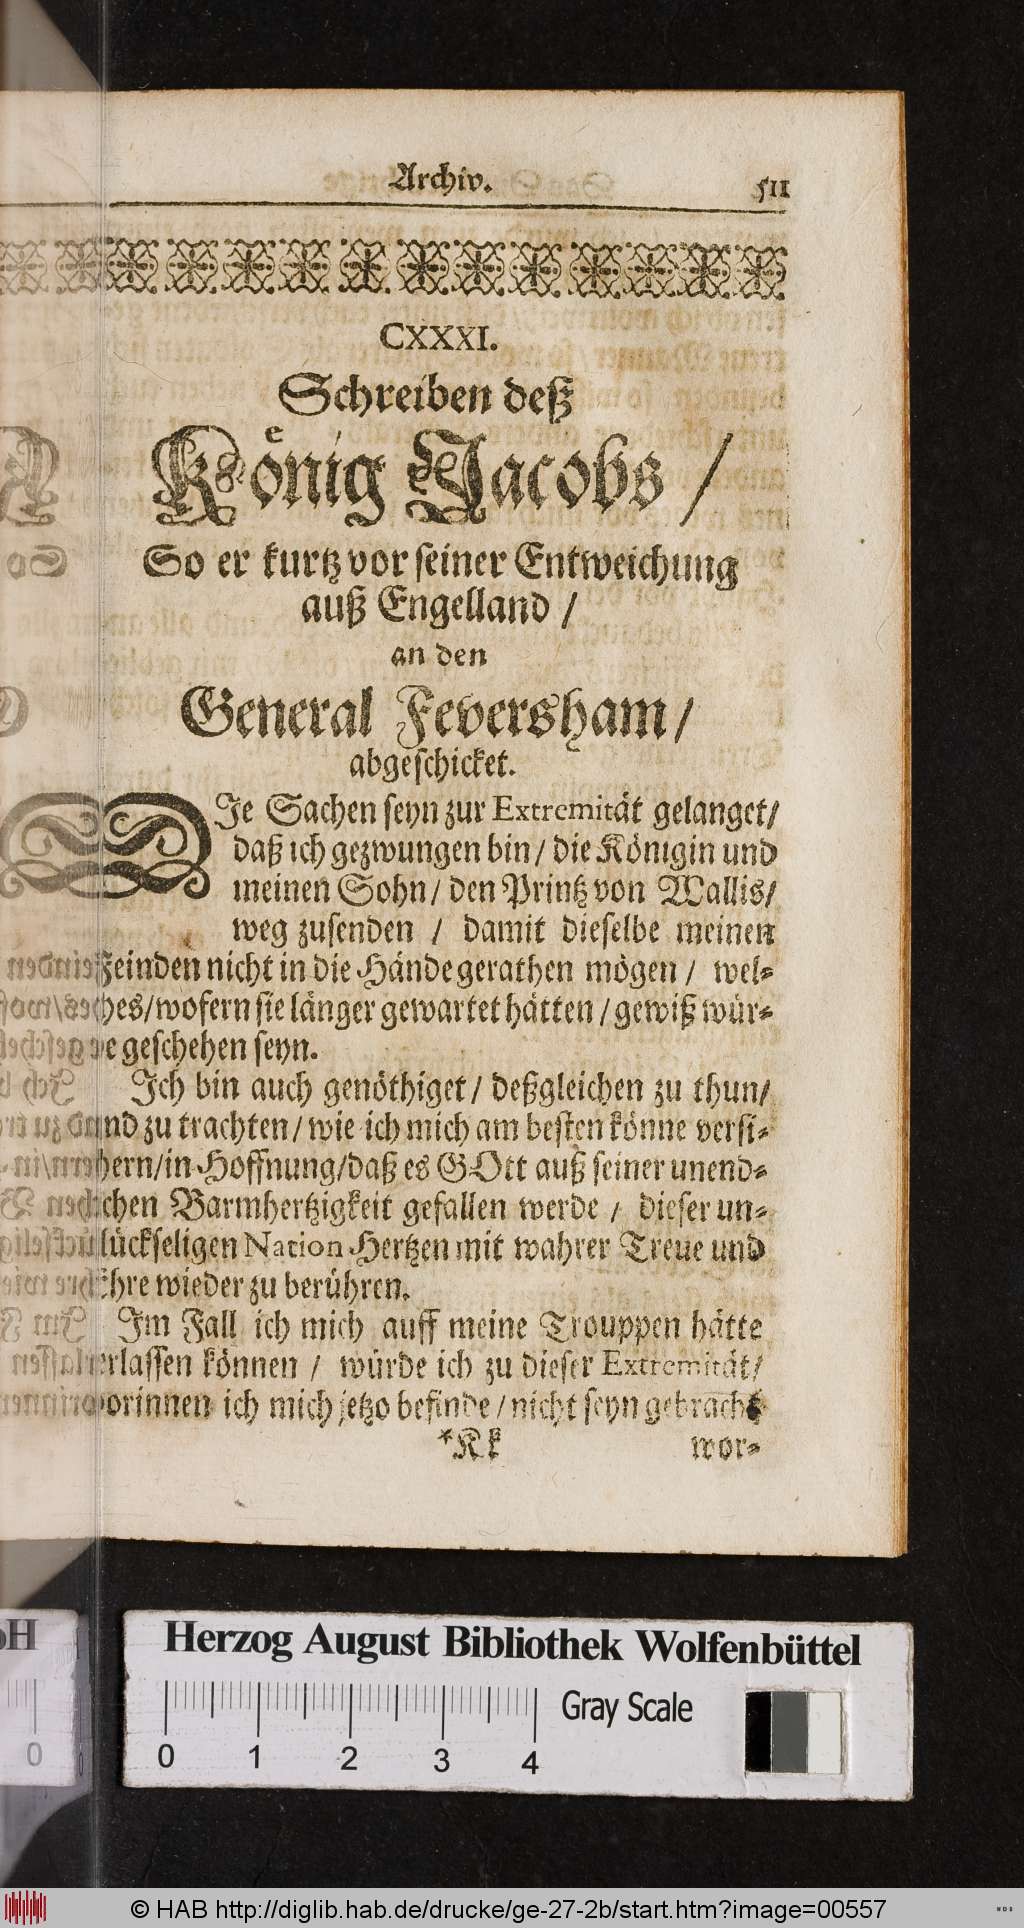 Archiv. 511
CXXXI.
Schreiben deß
Koͤnig Jacobs /
So er kurtz vor seiner Entweichung
auß Engelland /
an den
General Feversham /
abgeschicket.
DIe Sachen seyn zur Extremität gelanget /
daß ich gezwungen bin / die Königin und
meinen Sohn / den Printz von Wallis /
weg zusenden / damit dieselbe meinen
Feinden nicht in die Hände gerathen mögen / wel-
ches / wofern sie länger gewartet hätten / gewiß wür-
de geschehen seyn.
Ich bin auch genöthiget / deßgleichen zu thun /
und zu trachten / wie ich mich am besten könne versi-
chern / in Hoffnung / daß es GOtt auß seiner unend-
lichen Barmhertzigkeit gefallen werde / dieser un-
glückseligen Nation Hertzen mit wahrer Treue und
Ehre wieder zu berühren.
Im Fall ich mich auff meine Trouppen hätte
verlassen können / würde ich zu dieser Extremität /
worinnen ich mich jetzo befinde / nicht seyn gebracht
*Kk wor-
Herzog August Bibliothek Wolfenbüttel
Gray Scale
0 0 1 2 3 4
© HAB http://diglib.hab.de/drucke/ge-27-2b/start.htm?image=00557